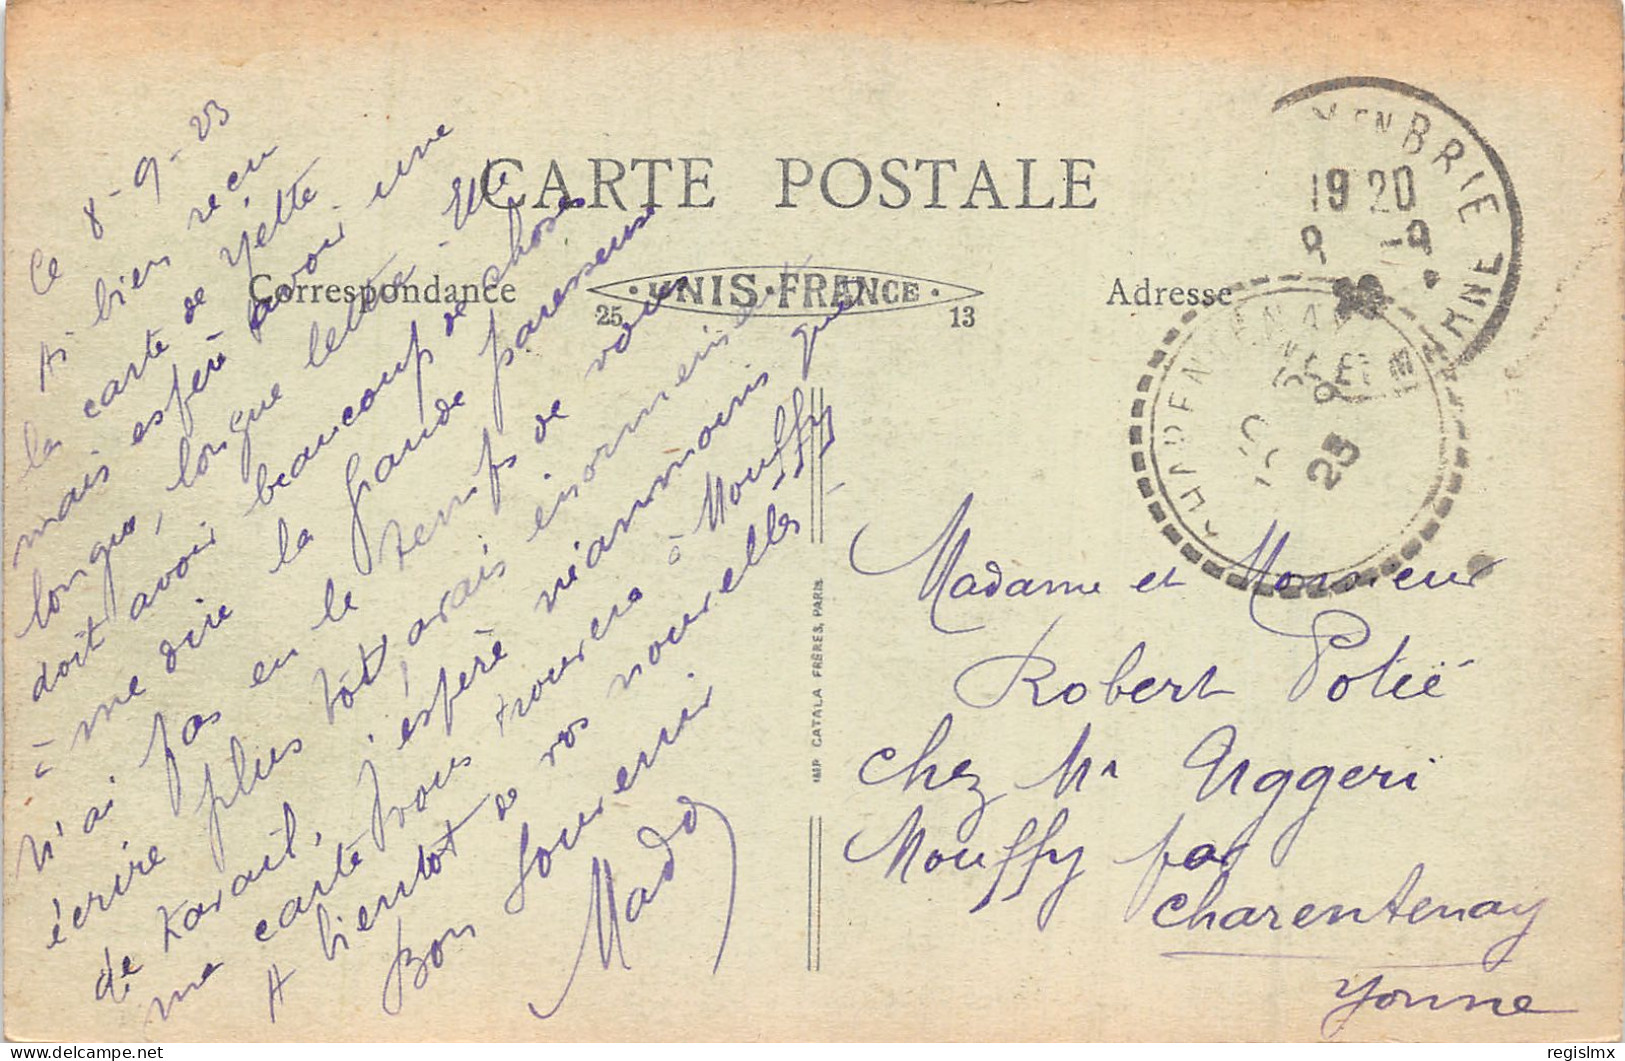 CARTE POSTALE
Correspondance
UNIS-FRANCE
25 13
Adresse
Ce 8-9-25
Ai bien recu
la carte de Yette
mais esperè avoir une
longue, longue lettre. Elle
doit avoir beaucoup de choses
à me dire la grande paresseuse
N'ai pas eu le temps de vous
écrire plus tôt, avais énormement
de travail, j'espère néanmoins que
ma carte vous trouvera à Mouffy
A bientot de vos nouvelles
Bon Souvenir
Mado
IMP. CATALA FRÈRES, PARIS
EN BRIE
19 20
8 -9
MNE
CHARENTENAY
YONNE
9
25
Madame et Monsieur
Robert Potié
chez Mr Uggeri
Mouffy par
Charentenay
Yonne
regislmx